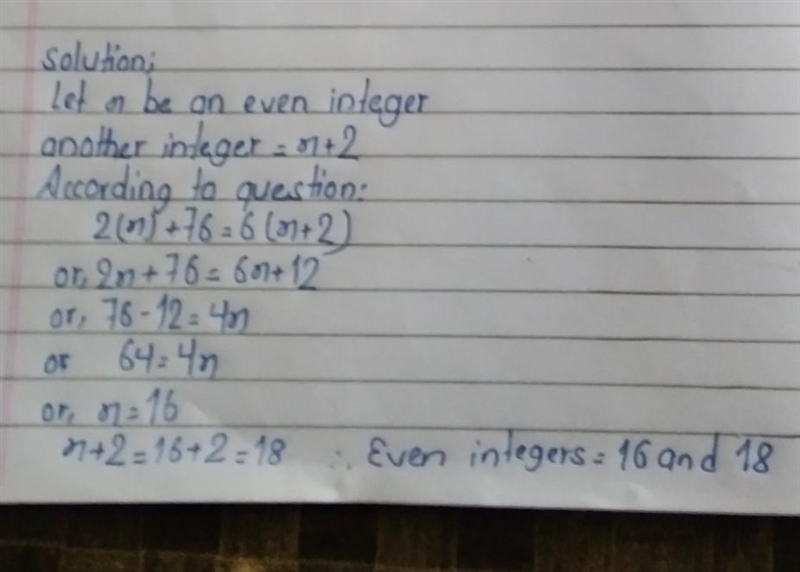 Solution;
Let n be an even integer
another integer = n+2
According to question:
2(n)+76=6(n+2)
or, 2n+76=6n+12
or, 76-12=4n
or 64=4n
or, n=16
n+2=16+2=18 ∴ Even integers=16 and 18